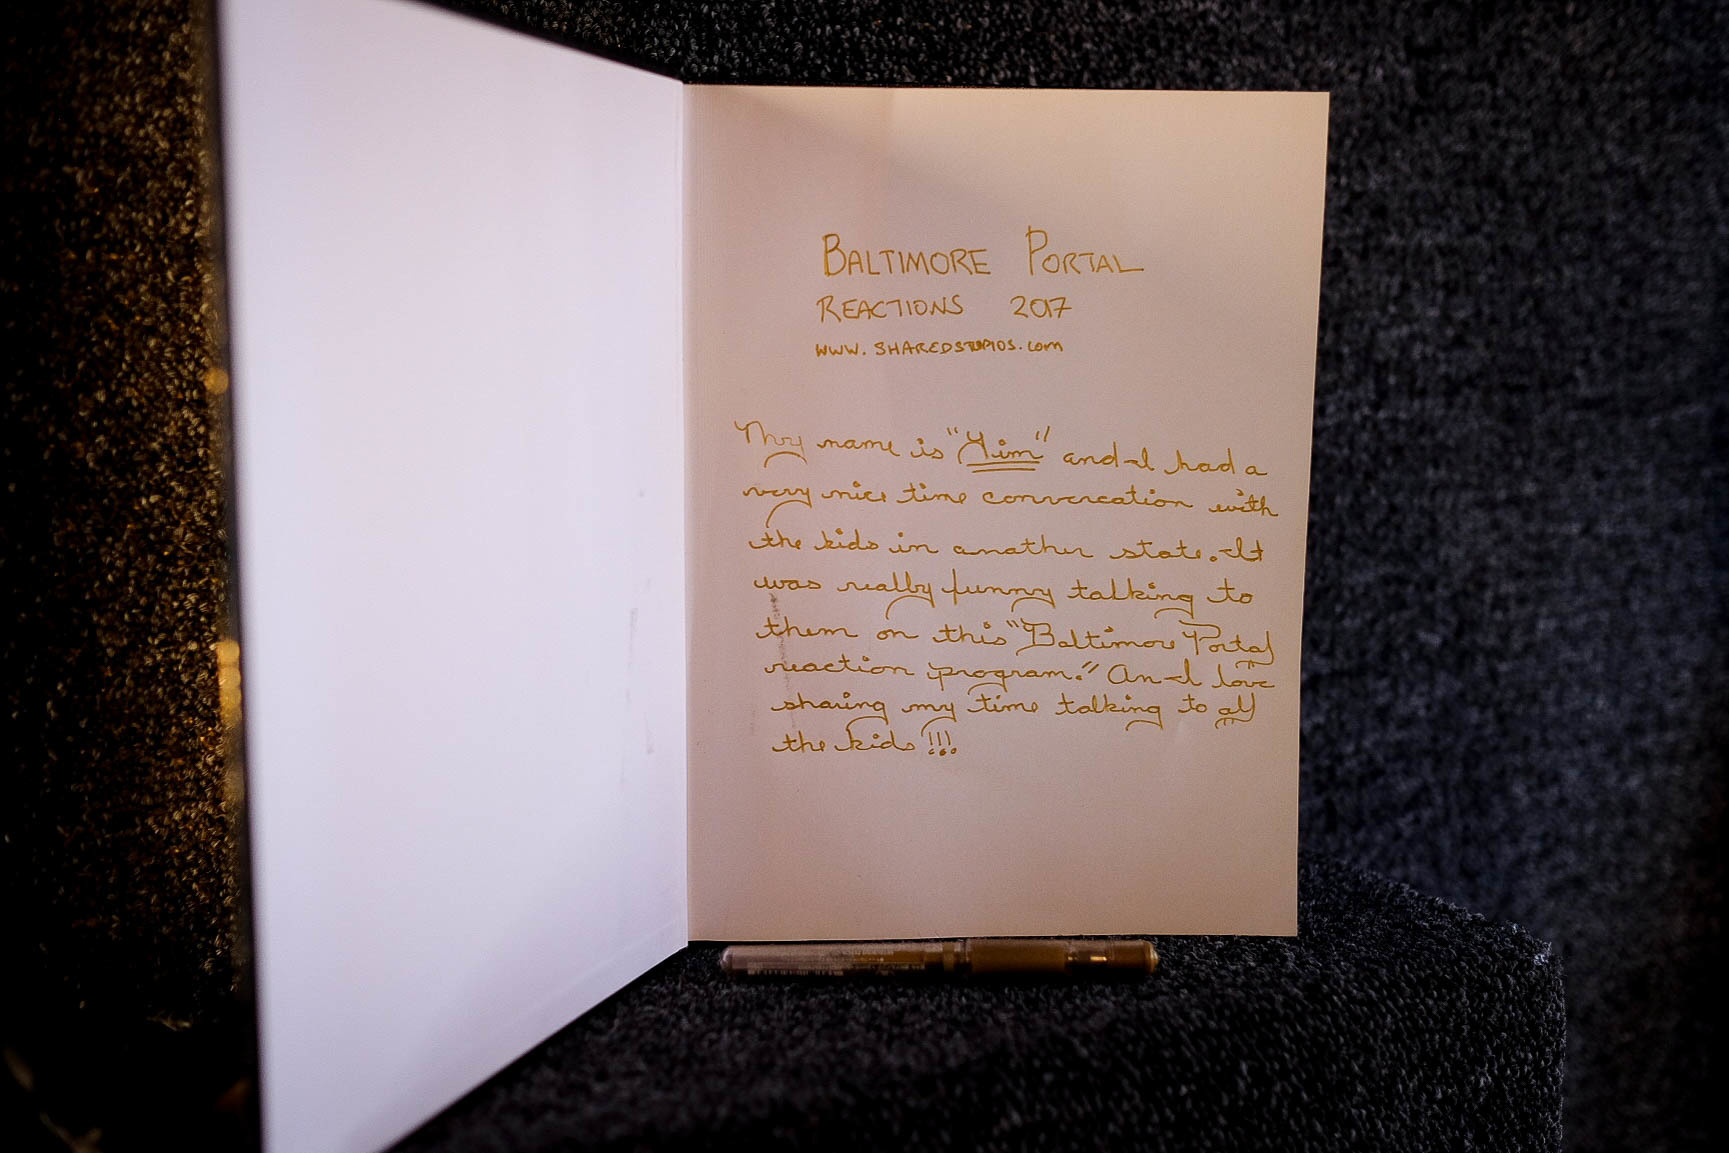 BALTIMORE PORTAL
REACTIONS 2017
WWW.SHAREDSTUDIOS.COM
My name is "Yim" and I had a
very nice time convercation with
the kids in another state. It
was really funny talking to
them on this "Baltimore Portal
reaction program." An I love
sharing my time talking to all
the kids!!!